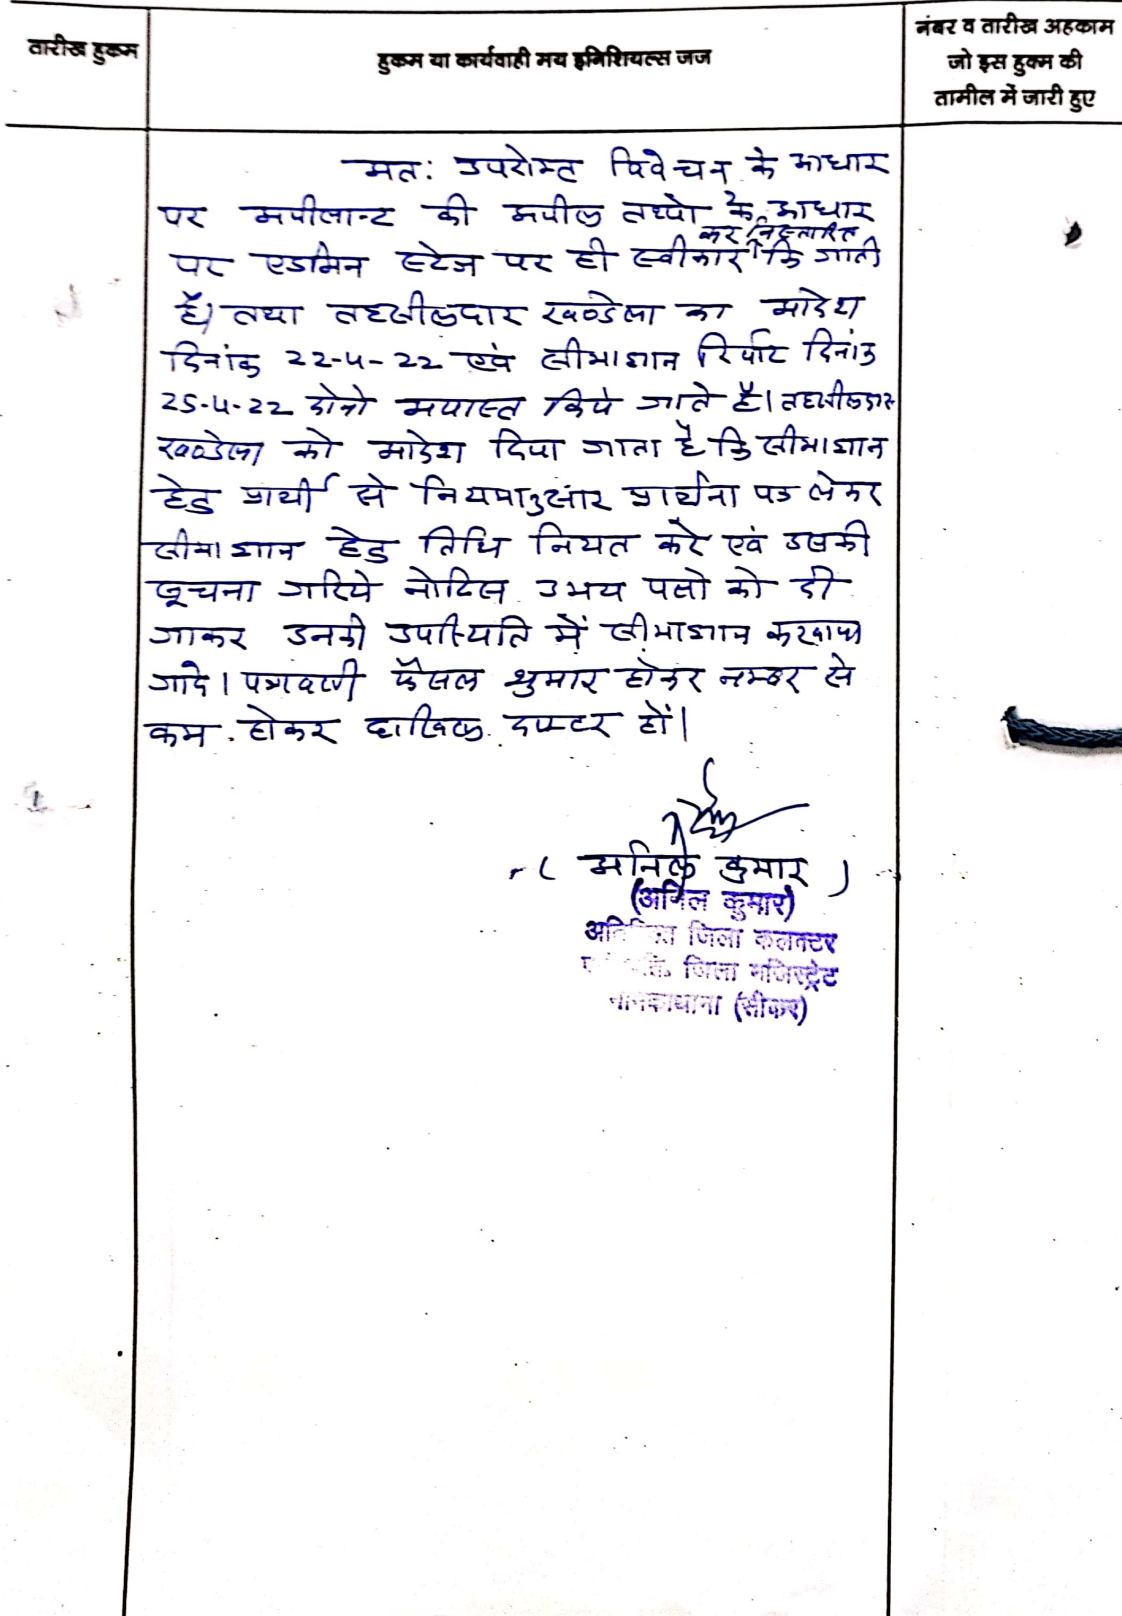 तारीख हुकम
हुकम या कार्यवाही मय इनिशियल्स जज
नंबर व तारीख अहकाम
जो इस हुक्म की
तामील में जारी हुए
अतः उपरोक्त विवेचन के आधार
पर अपीलान्ट की अपील तथ्यो के आधार
पर एडमिन स्टेज पर ही स्वीकार कर निस्तारित कि जाती
है। तथा तहसीलदार खण्डेला का आदेश
दिनांक 22-4-22 एवं सीमाज्ञान रिर्पोट दिनांक
25-4-22 दोनो अपास्त किये जाते है। तहसीलदार
खण्डेला को आदेश दिया जाता है कि सीमाज्ञान
हेतु प्रार्थी से नियमानुसार प्रार्थना पत्र लेकर
सीमाज्ञान हेतु तिथि नियत करे एवं उसकी
सूचना जरिये नोटिस उभय पक्षो को दी
जाकर उनकी उपस्थिति में सीमाज्ञान करवाया
जावे। पत्रावली फैसल शुमार होकर नम्बर से
कम होकर दाखिल दफ्टर हों।
( अनिल कुमार )
(अनिल कुमार)
अतिरिक्त जिला कलक्टर
अति. जिला मजिस्ट्रेट
नीमकाथाना (सीकर)